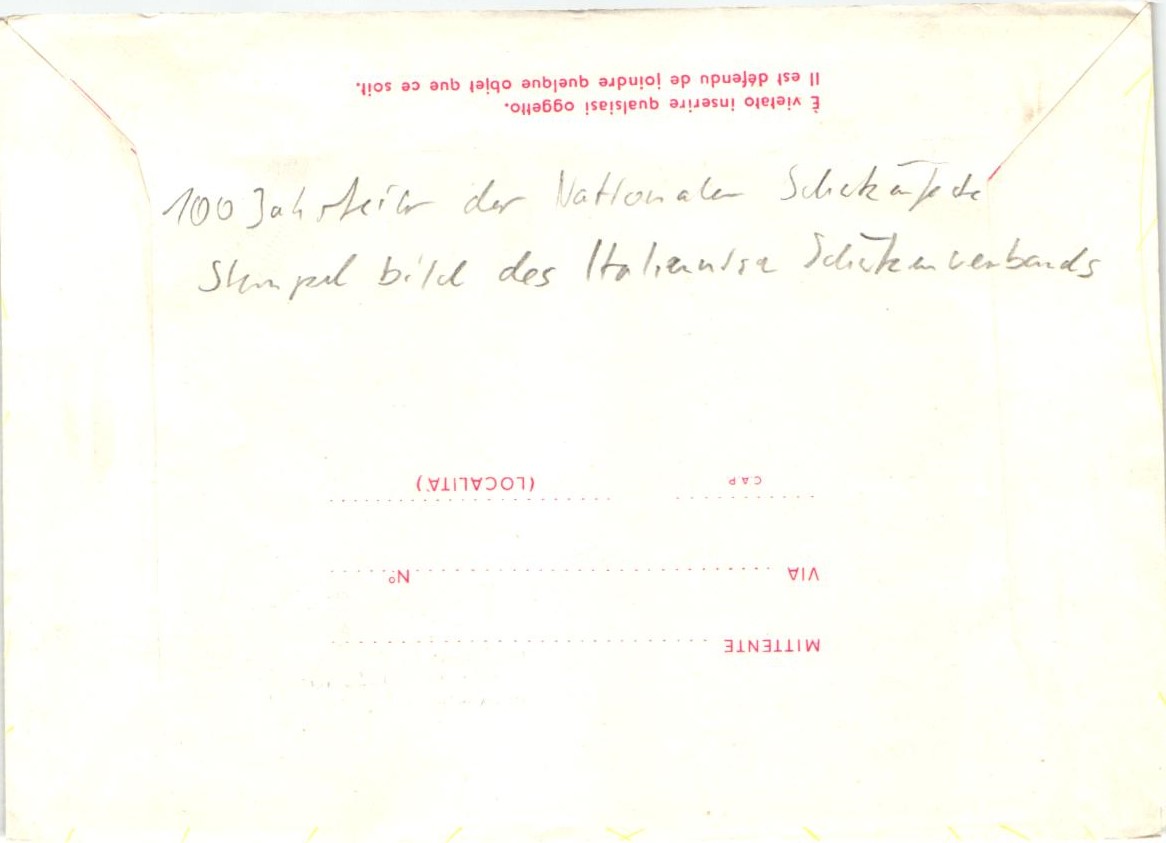 Il est défendu de joindre quelque objet que ce soit.
È vietato inserire qualsiasi oggetto.
100 Jahrfeier der Nationalen Schützenfeste
Stempel bild des Italienische Schützenverbands
(LOCALITÀ) CAP
VIA N°
MITTENTE